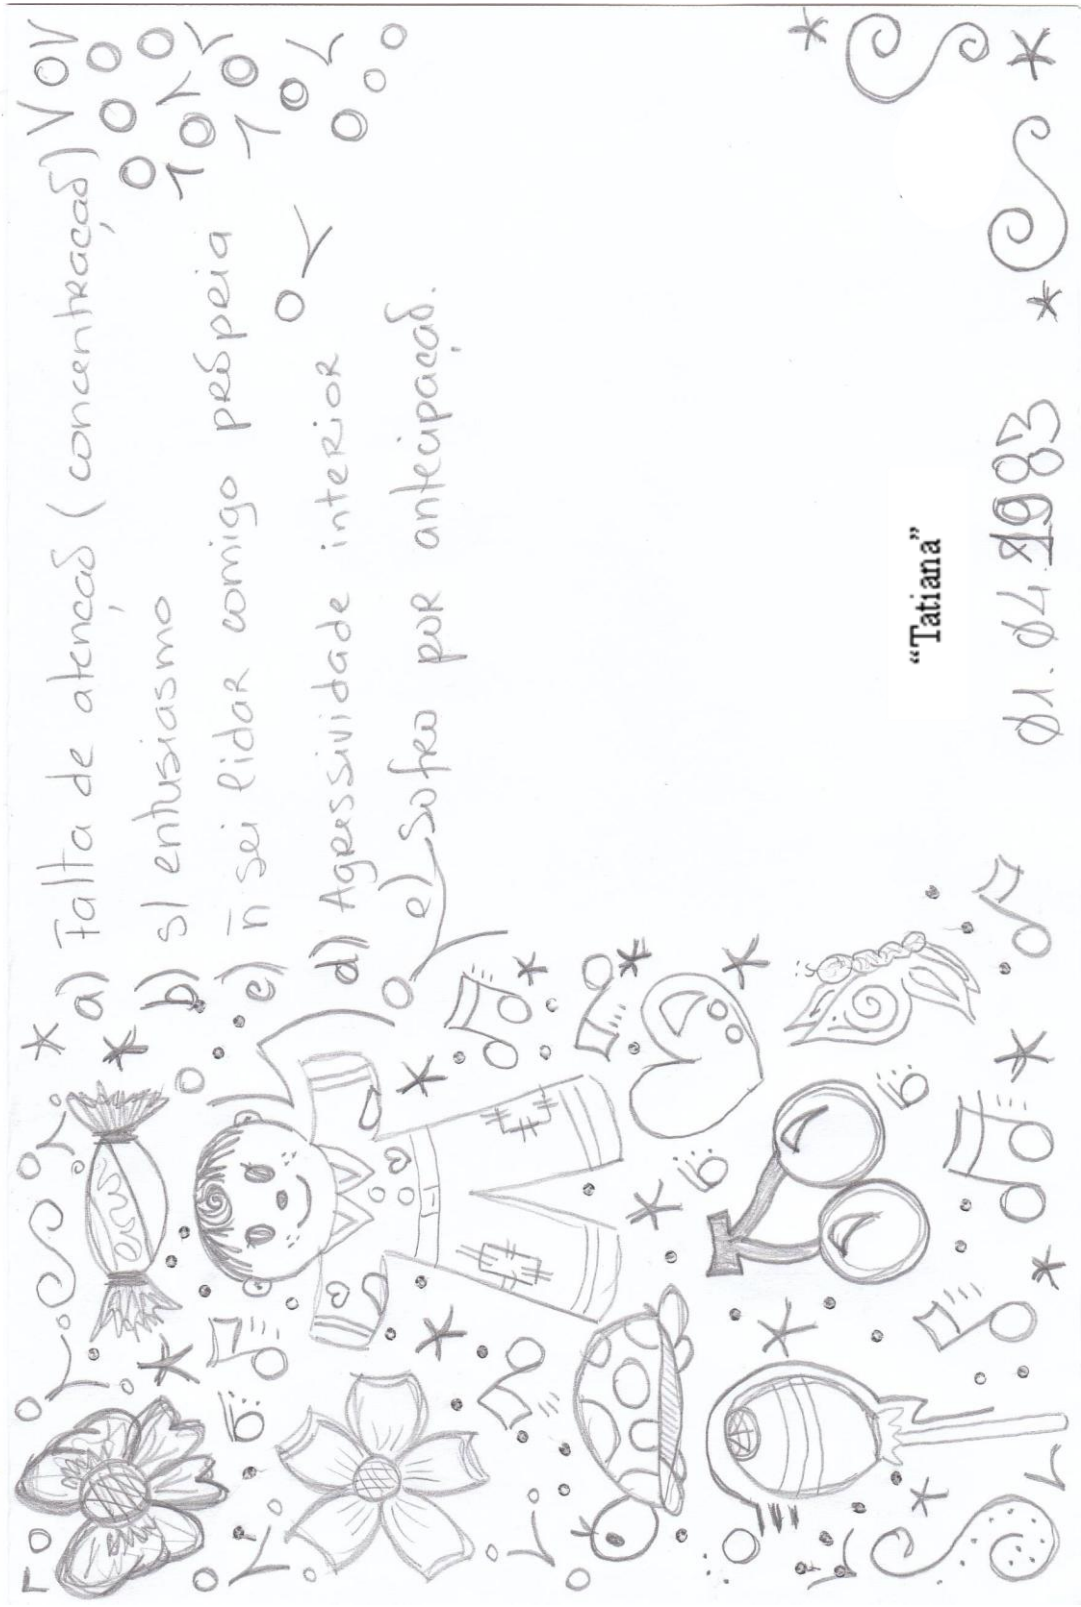 a) Falta de atenção (concentração)
b) s/ entusiasmo
c) ñ sei lidar comigo própria
d) Agressividade interior
e) Sofro por antecipação.
"Tatiana"
01.04.1983